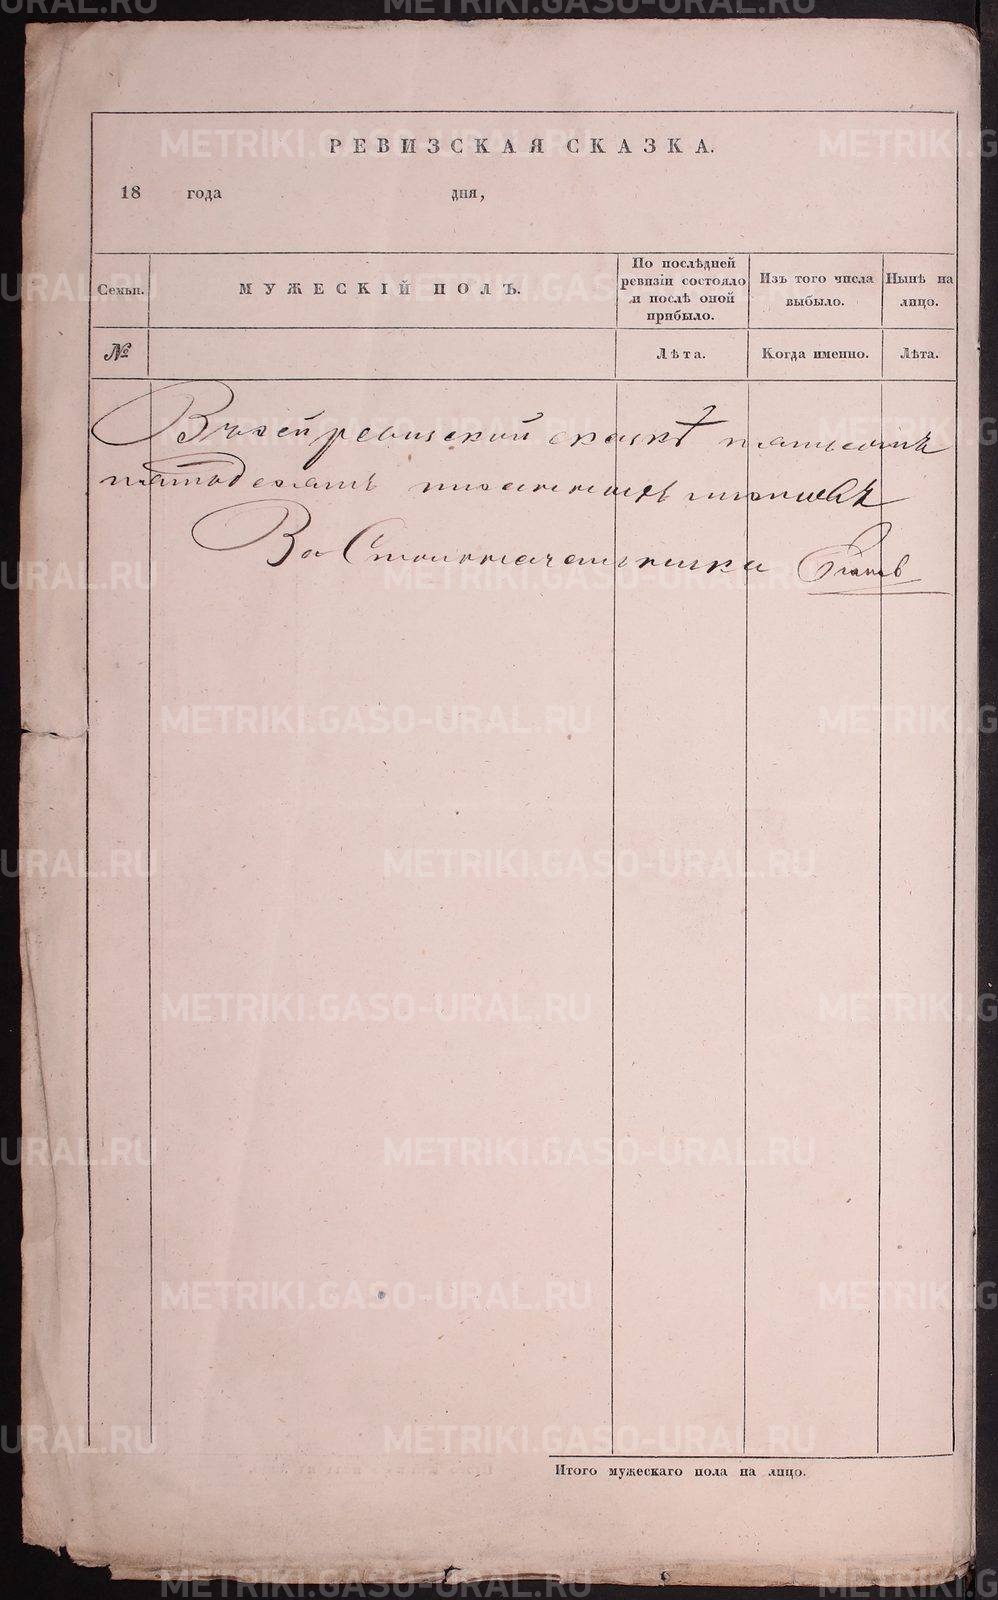 РЕВИЗСКАЯ СКАЗКА.
18 года дня,
Семьи.
МУЖЕСКІЙ ПОЛЪ.
По послѣдней ревизіи состояло и послѣ оной прибыло.
Изъ того числа выбыло.
Нынѣ на лицо.
№
Лѣта.
Когда именно.
Лѣта.
Въ сей ревизской сказкѣ пятьсотъ
пятьдесятъ писанныхъ листовъ
За Столоначальника
Итого мужескаго пола на лицо.
METRIKI.GASO-URAL.RU